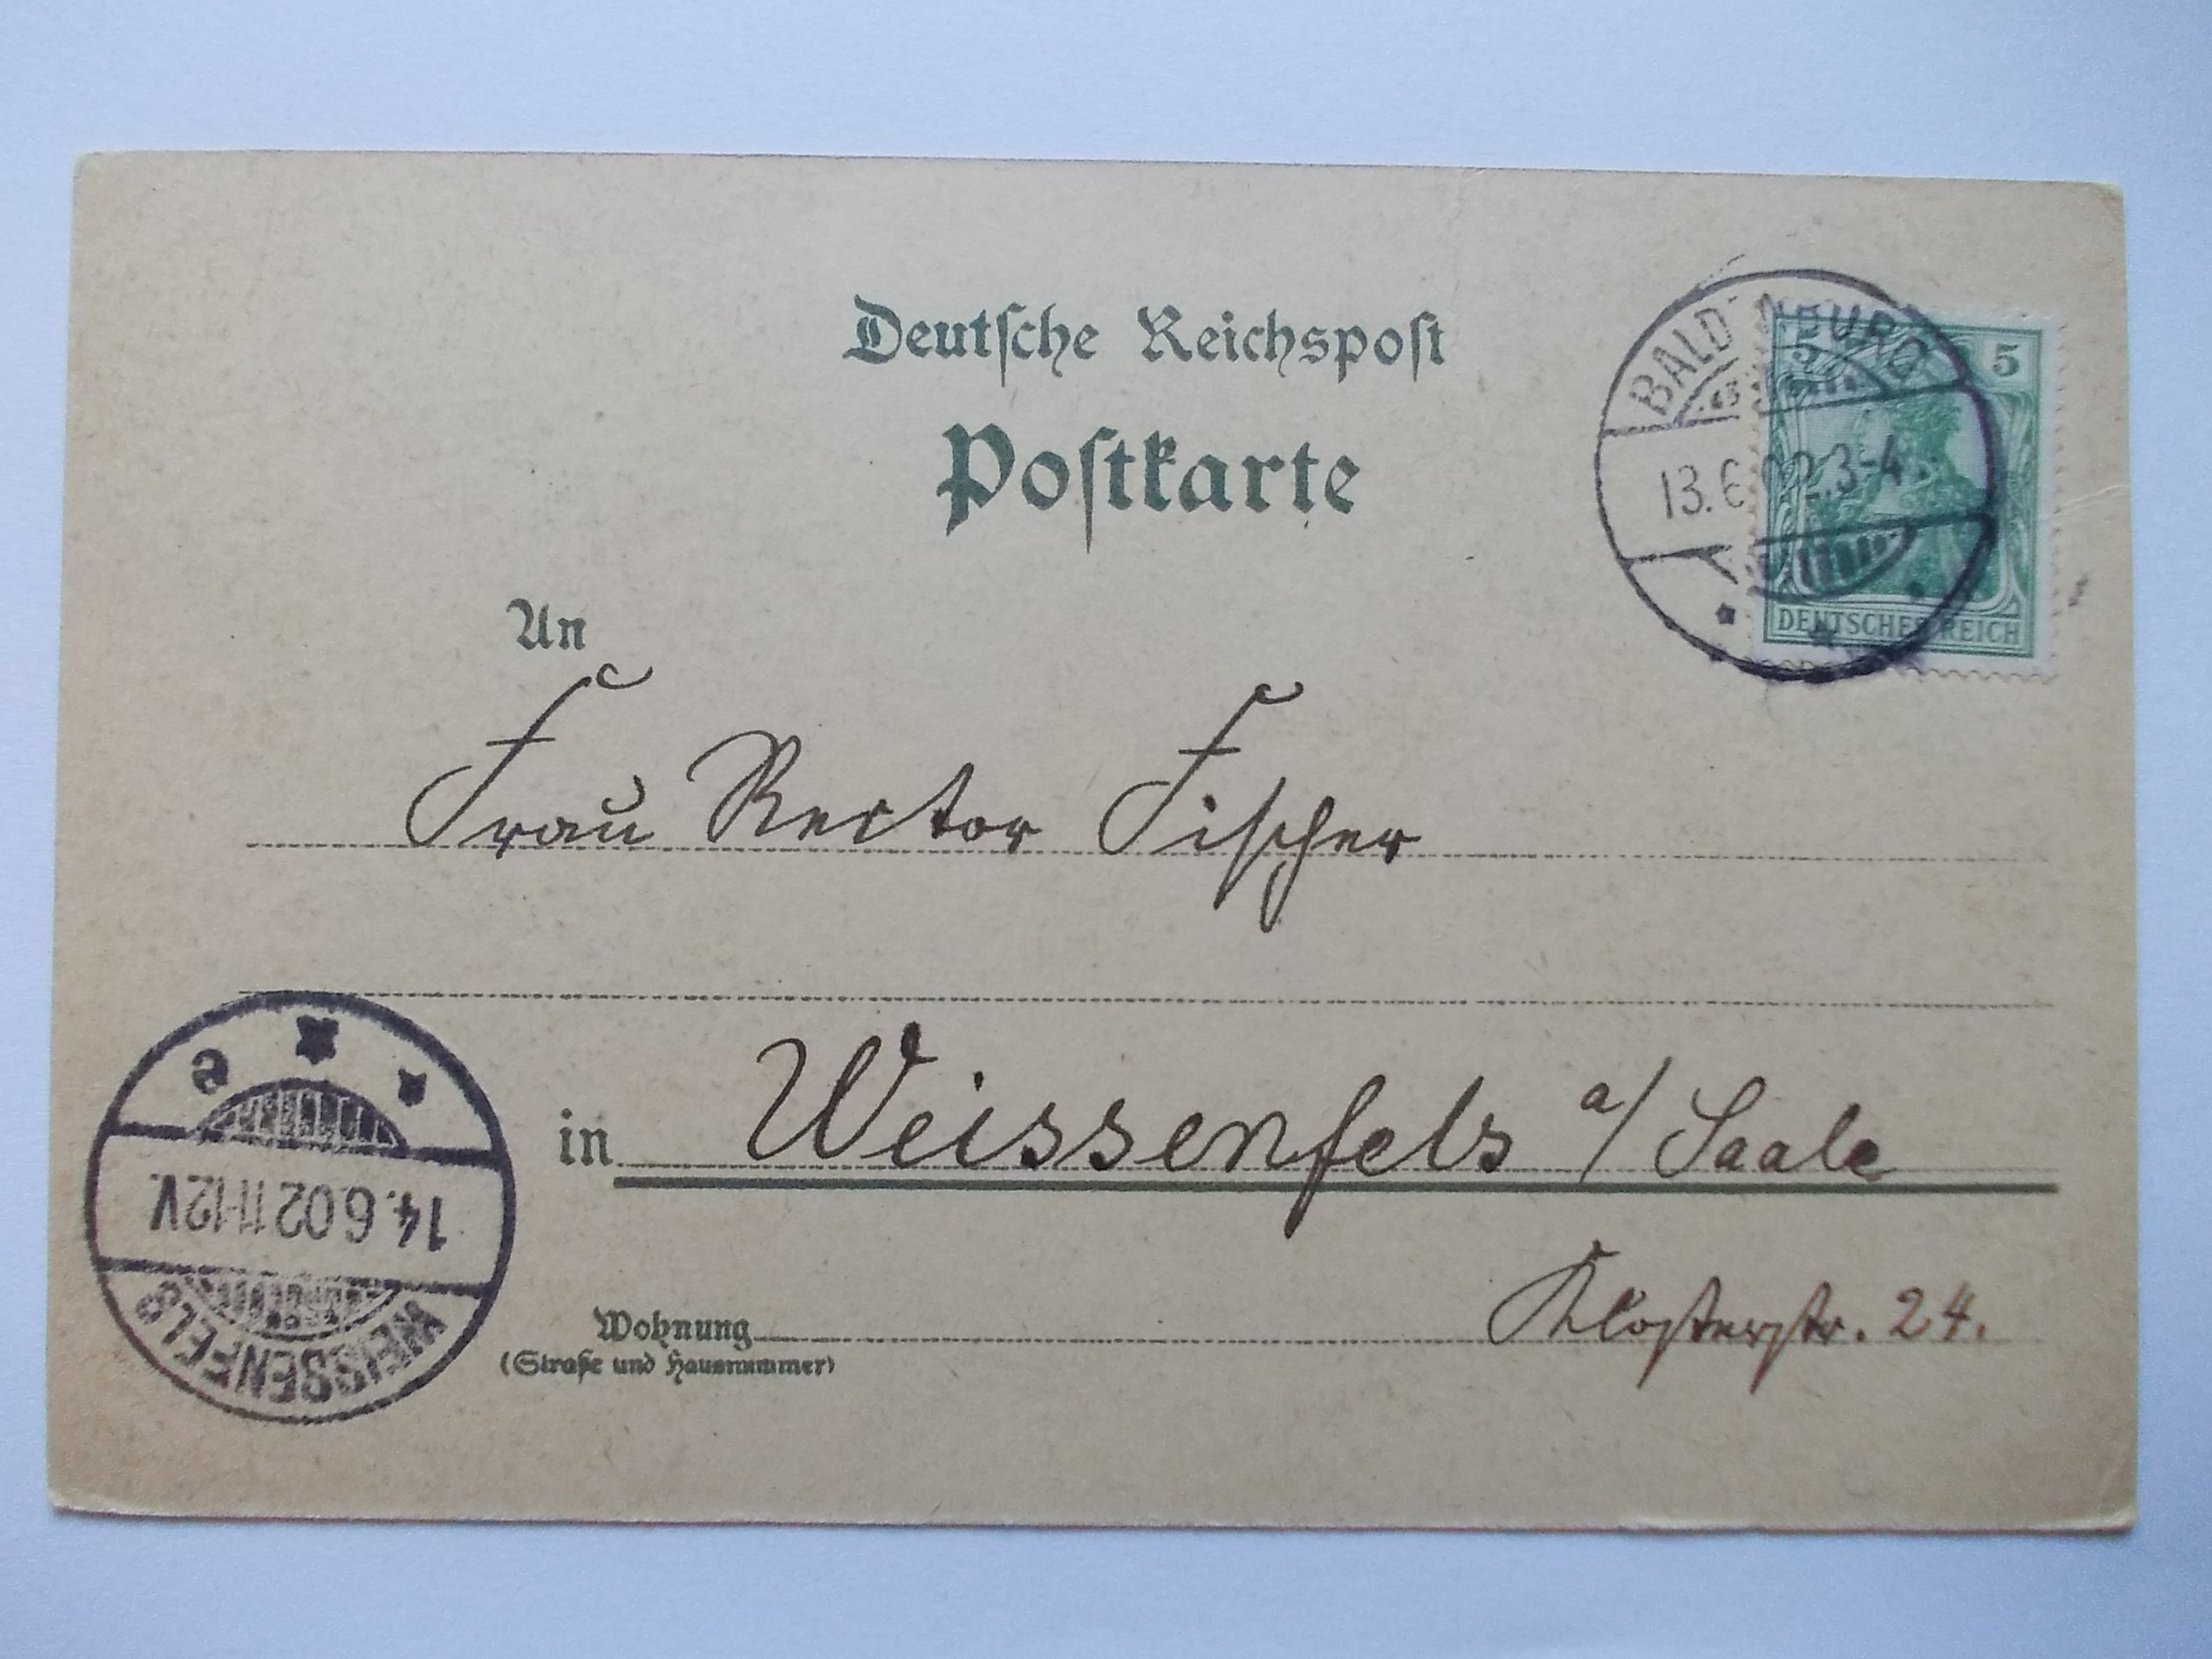 Deutsche Reichspost
Postkarte
BALD NBURG
13.6 02.3-4
5
DEUTSCHES REICH
An
Frau Rector Fischer
in Weissenfels a/ Saale
Wohnung Klosterstr. 24.
(Straße und Hausnummer)
WEISSENFELS
14.6.02 11-12V.
e